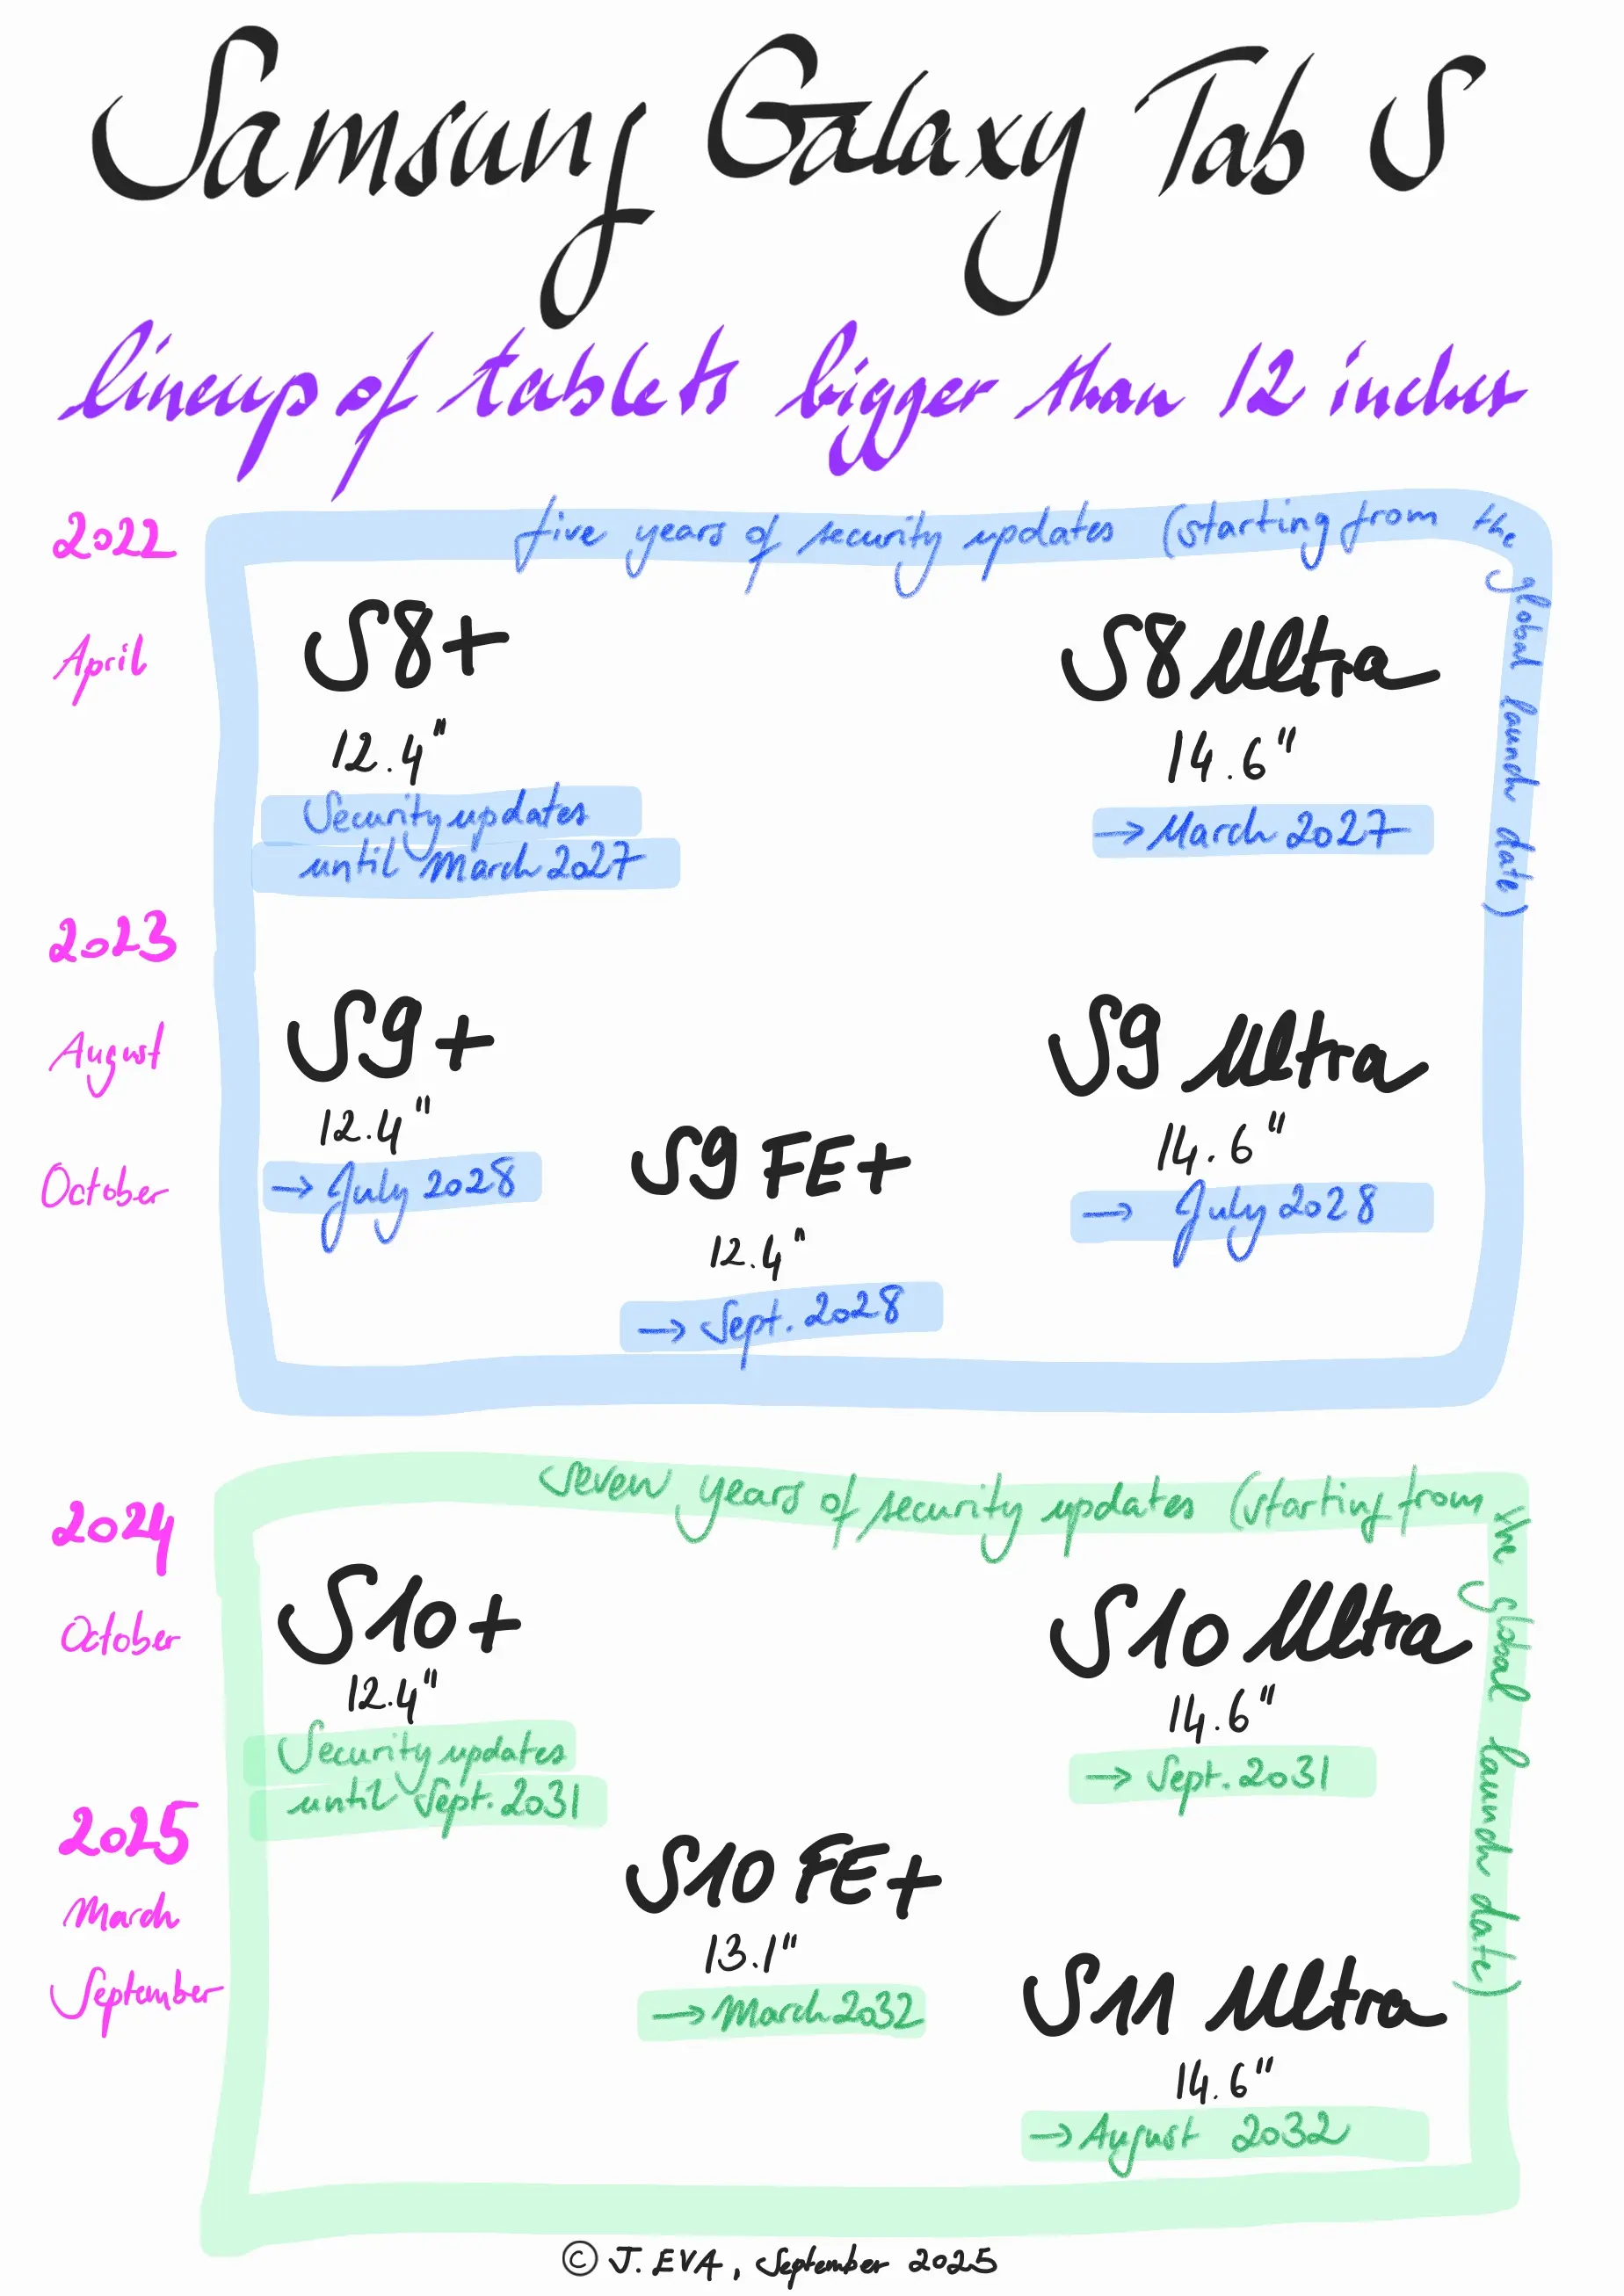 Samsung Galaxy Tab S
lineup of tablets bigger than 12 inches
2022
five years of security updates (starting from the global launch date)
April
S8+
12.4"
Security updates
until March 2027
S8 Ultra
14.6"
→ March 2027
2023
August
S9+
12.4"
→ July 2028
S9 Ultra
14.6"
→ July 2028
October
S9 FE+
12.4"
→ Sept. 2028
seven years of security updates (starting from the global launch date)
2024
October
S10+
12.4"
Security updates
until Sept. 2031
S10 Ultra
14.6"
→ Sept. 2031
2025
March
S10 FE+
13.1"
→ March 2032
September
S11 Ultra
14.6"
→ August 2032
© J. EVA, September 2025